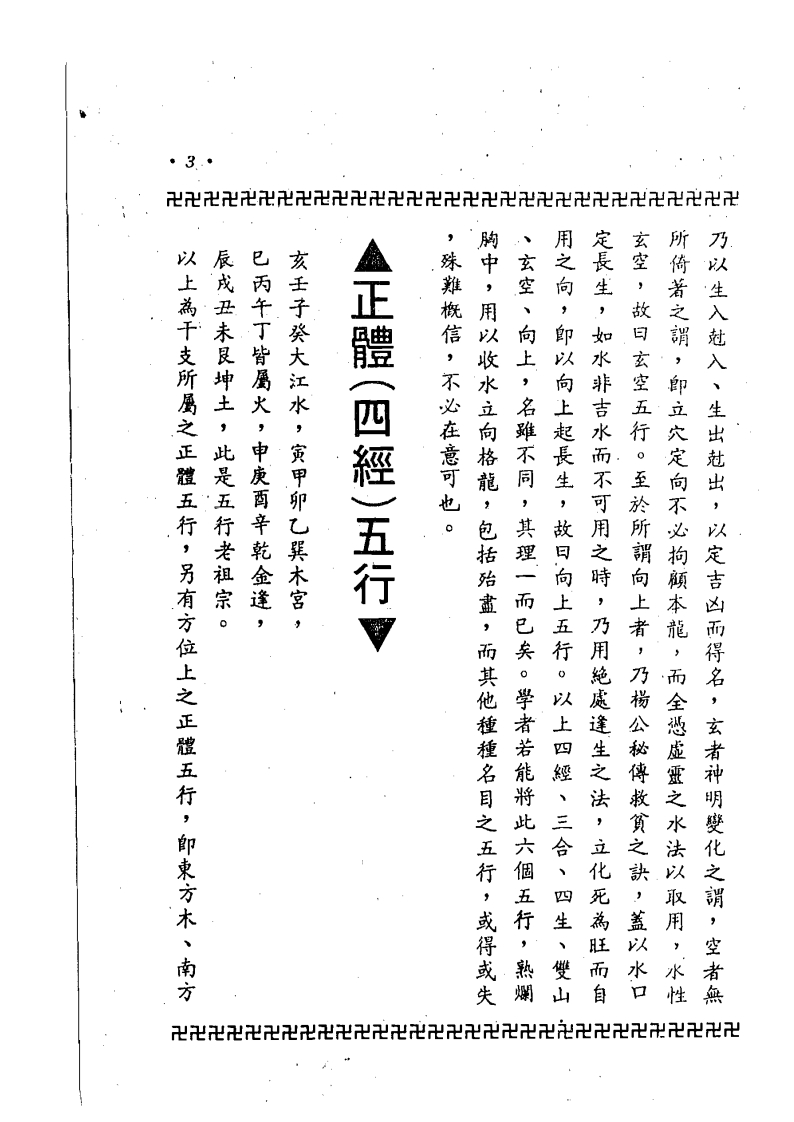 •3•
卍卍卍卍卍卍卍卍卍卍卍卍卍卍卍卍卍卍卍卍卍卍卍卍卍卍卍卍卍卍卍
乃以生入尅入、生出尅出，以定吉凶而得名，玄者神明變化之謂，空者無
所倚著之謂，卽立穴定向不必拘顧本龍，而全憑虛靈之水法以取用，水性
玄空，故曰玄空五行。至於所謂向上者，乃楊公秘傳救貧之訣，蓋以水口
定長生，如水非吉水而不可用之時，乃用絕處逢生之法，立化死為旺而自
用之向，卽以向上起長生，故曰向上五行。以上四經、三合、四生、雙山
、玄空、向上，名雖不同，其理一而已矣。學者若能將此六個五行，熟爛
胸中，用以收水立向格龍，包括殆盡，而其他種種名目之五行，或得或失
，殊難概信，不必在意可也。
▲正體(四經)五行▼
亥壬子癸大江水，寅甲卯乙巽木宮，
巳丙午丁皆屬火，申庚酉辛乾金逢，
辰戌丑未艮坤土，此是五行老祖宗。
以上為干支所屬之正體五行，另有方位上之正體五行，卽東方木、南方
卍卍卍卍卍卍卍卍卍卍卍卍卍卍卍卍卍卍卍卍卍卍卍卍卍卍卍卍卍卍卍